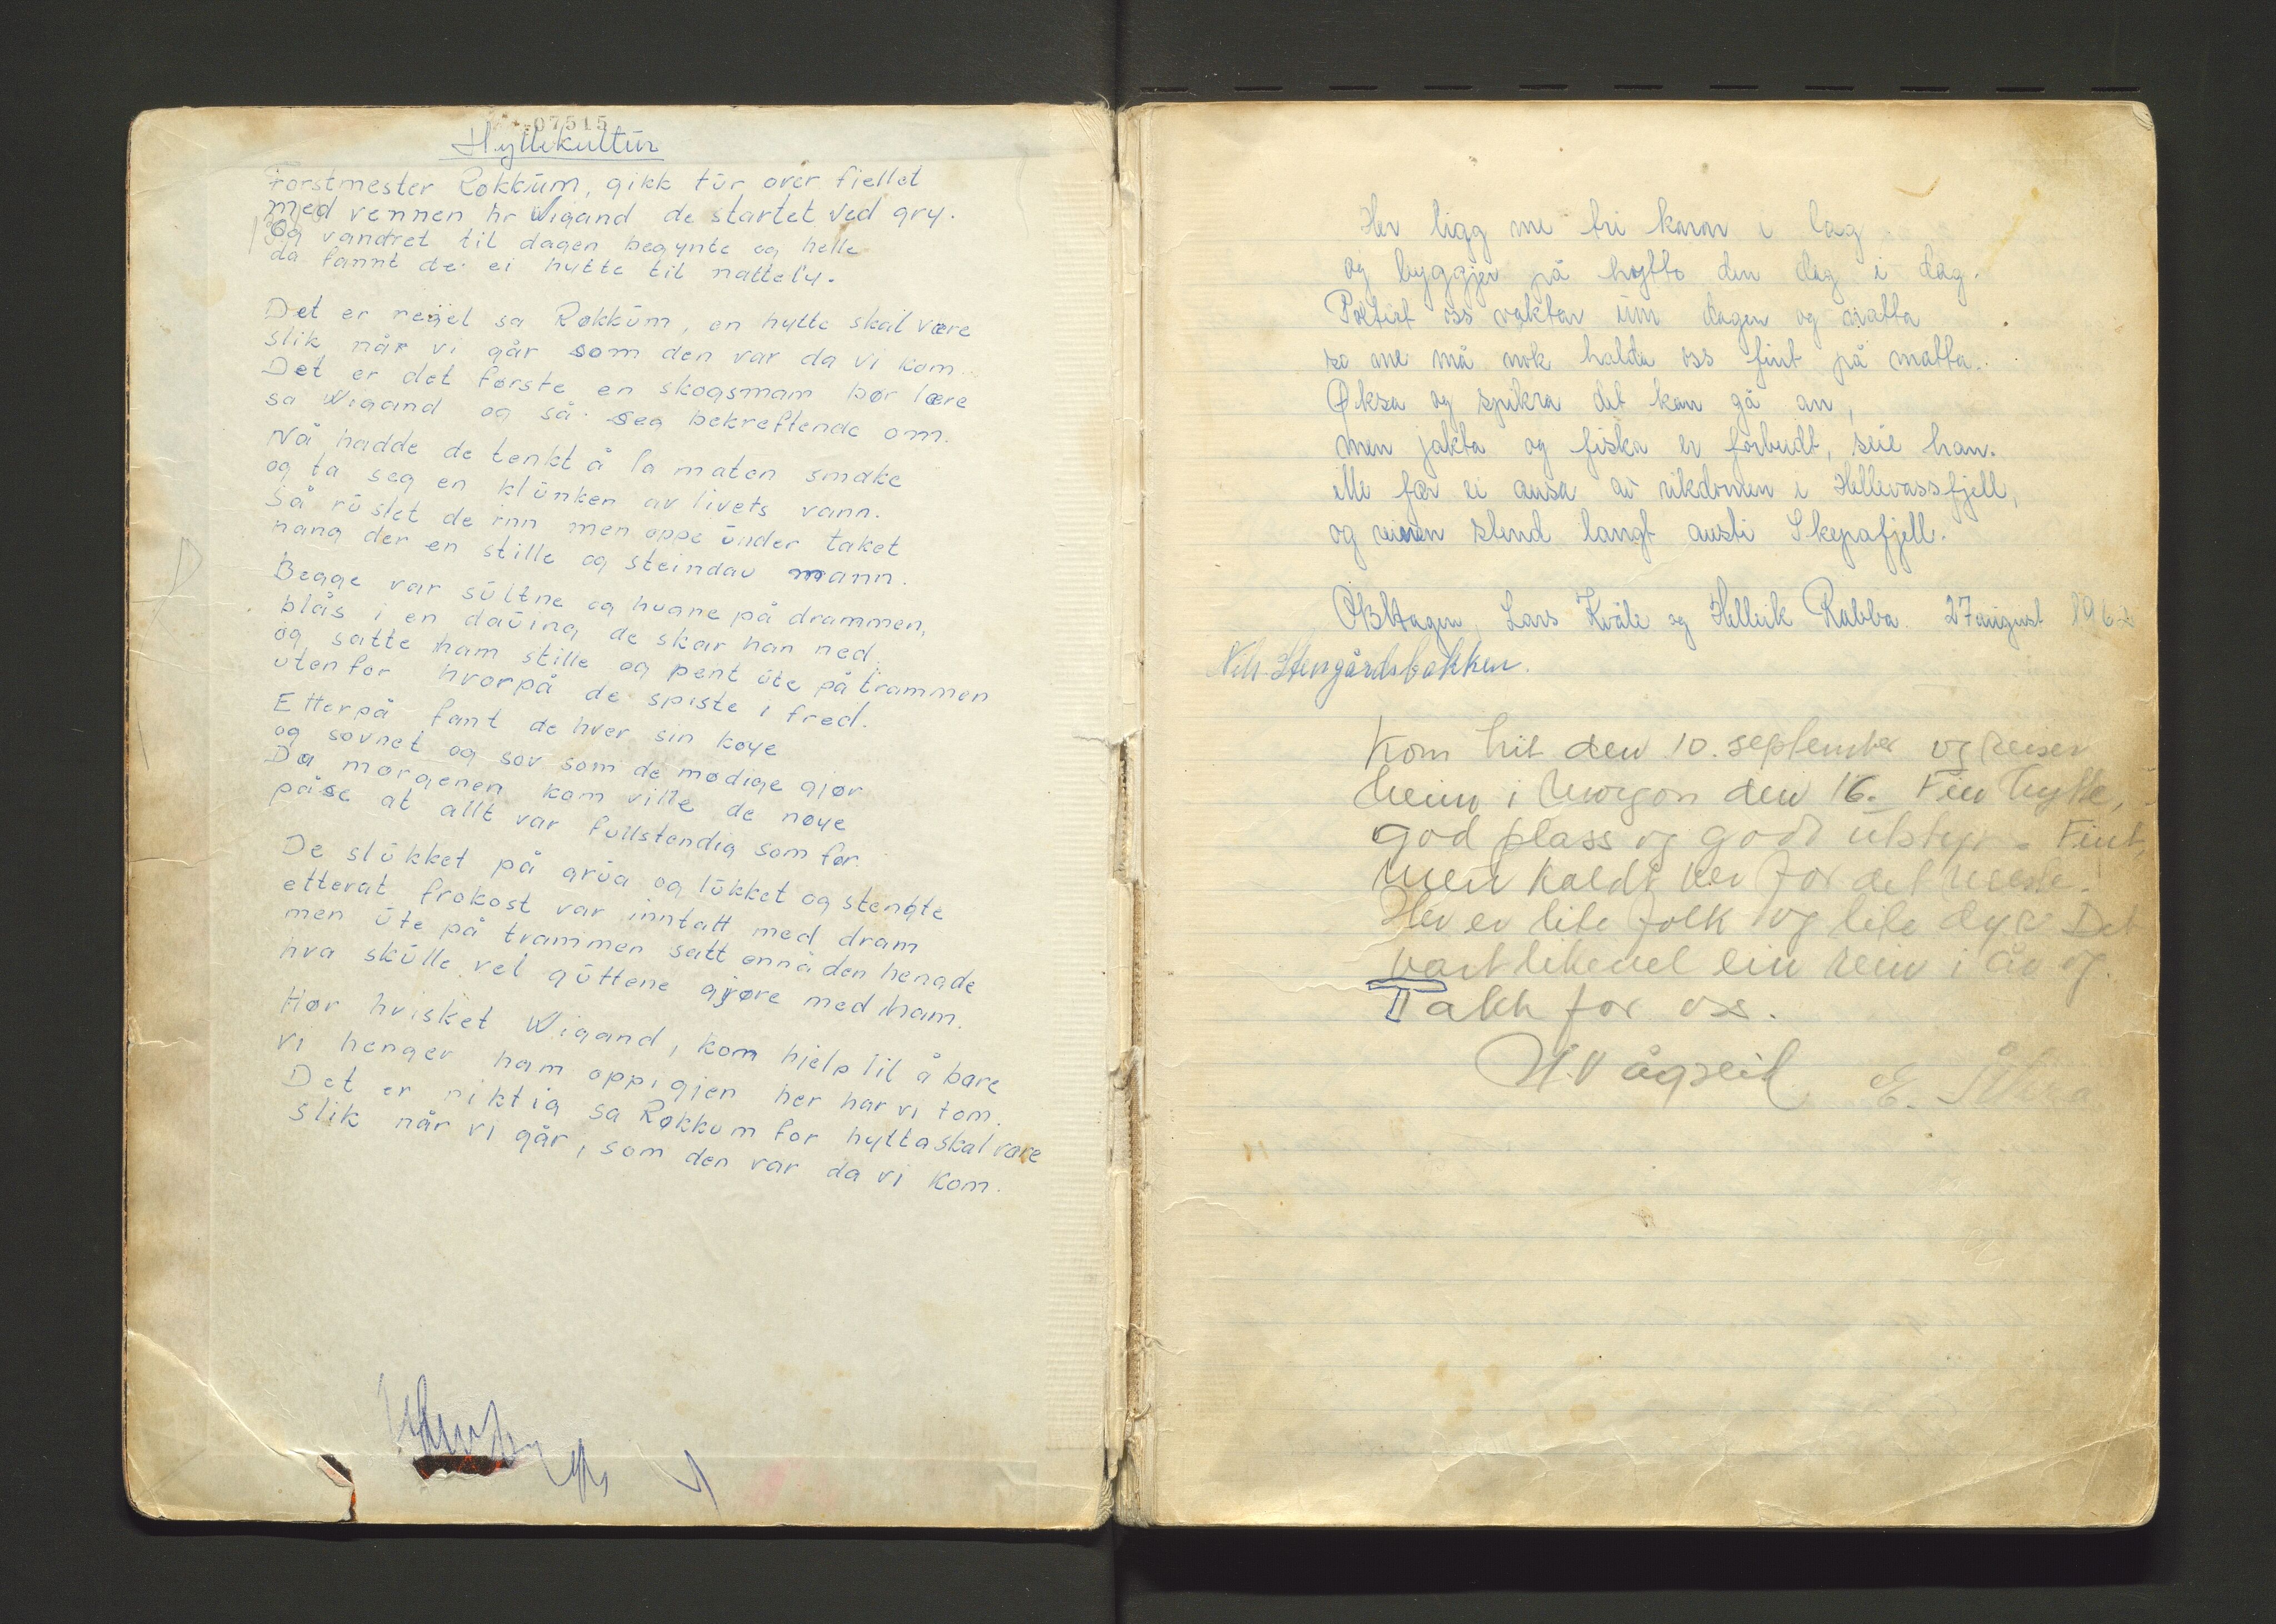 07515
Hyttekultür
Forstmester Rokküm, gikk tür over fjellet
med vennen hr Wigand de startet ved gry.
Og vandret til dagen begynte og helle
da fannt de ei hytte til nattely.
Det er regel sa Røkküm, en hytte skal være
slik når vi går som den var da vi kom
Det er det første en skogsmam bør lære
sa Wigand og så seg bekreftende om.
Nå hadde de tenkt å la maten smake
og ta seg en klünken av livets vann.
Så rüslet de inn men oppe ünder taket
hang der en stille og steindau mann.
Begge var sültne og hugne på drammen,
blås i en daüing de skar han ned
og satte ham stille og pent üte på trammen
utenfor hvorpå de spiste i fred.
Etterpå fant de hver sin køye
og sovnet og sov som de mødige gjør
Da morgenen kom ville de nøye
påse at allt var fullstendig som før.
De slükket på grüa og lükket og stengte
etterat frokost var inntatt med dram
men üte på trammen satt ennå den hengde
hva skülle vel güttene gjøre med ham.
Hør hvisket Wigand, kom hjelp til å bære
vi henger ham opp igjen her har vi tom.
Det er riktig sa Røkkum for hytta skal være
slik når vi går, som den var da vi kom.
Her ligg me tri karar i lag
og byggjer på hytto den dag i dag.
Politiet oss vaktar üm dagen og natta
so me må nok halda oss fint på matta.
Øksa og spikra det kan gå an,
men jakta og fiska er forbudt, seie han.
Me fær ei ausa av rikdomen i Hellevassfjell,
og reinen stend langt austi Skepafjell.
O.B. Hagen, Lars Kvåle og Hellik Rabba. 27 august 1962
Nils Stengårdsbakken.
Kom hit den 10. september og reiser
heim i morgon den 16. Fin hytte,
god plass og godt utstyr. Fint,
men kaldt ver for det meste.
Her er lite folk og lite dyr. Det
vart likevel ein rein i år og.
Takk for oss.
H. Vågseid E. Åkra